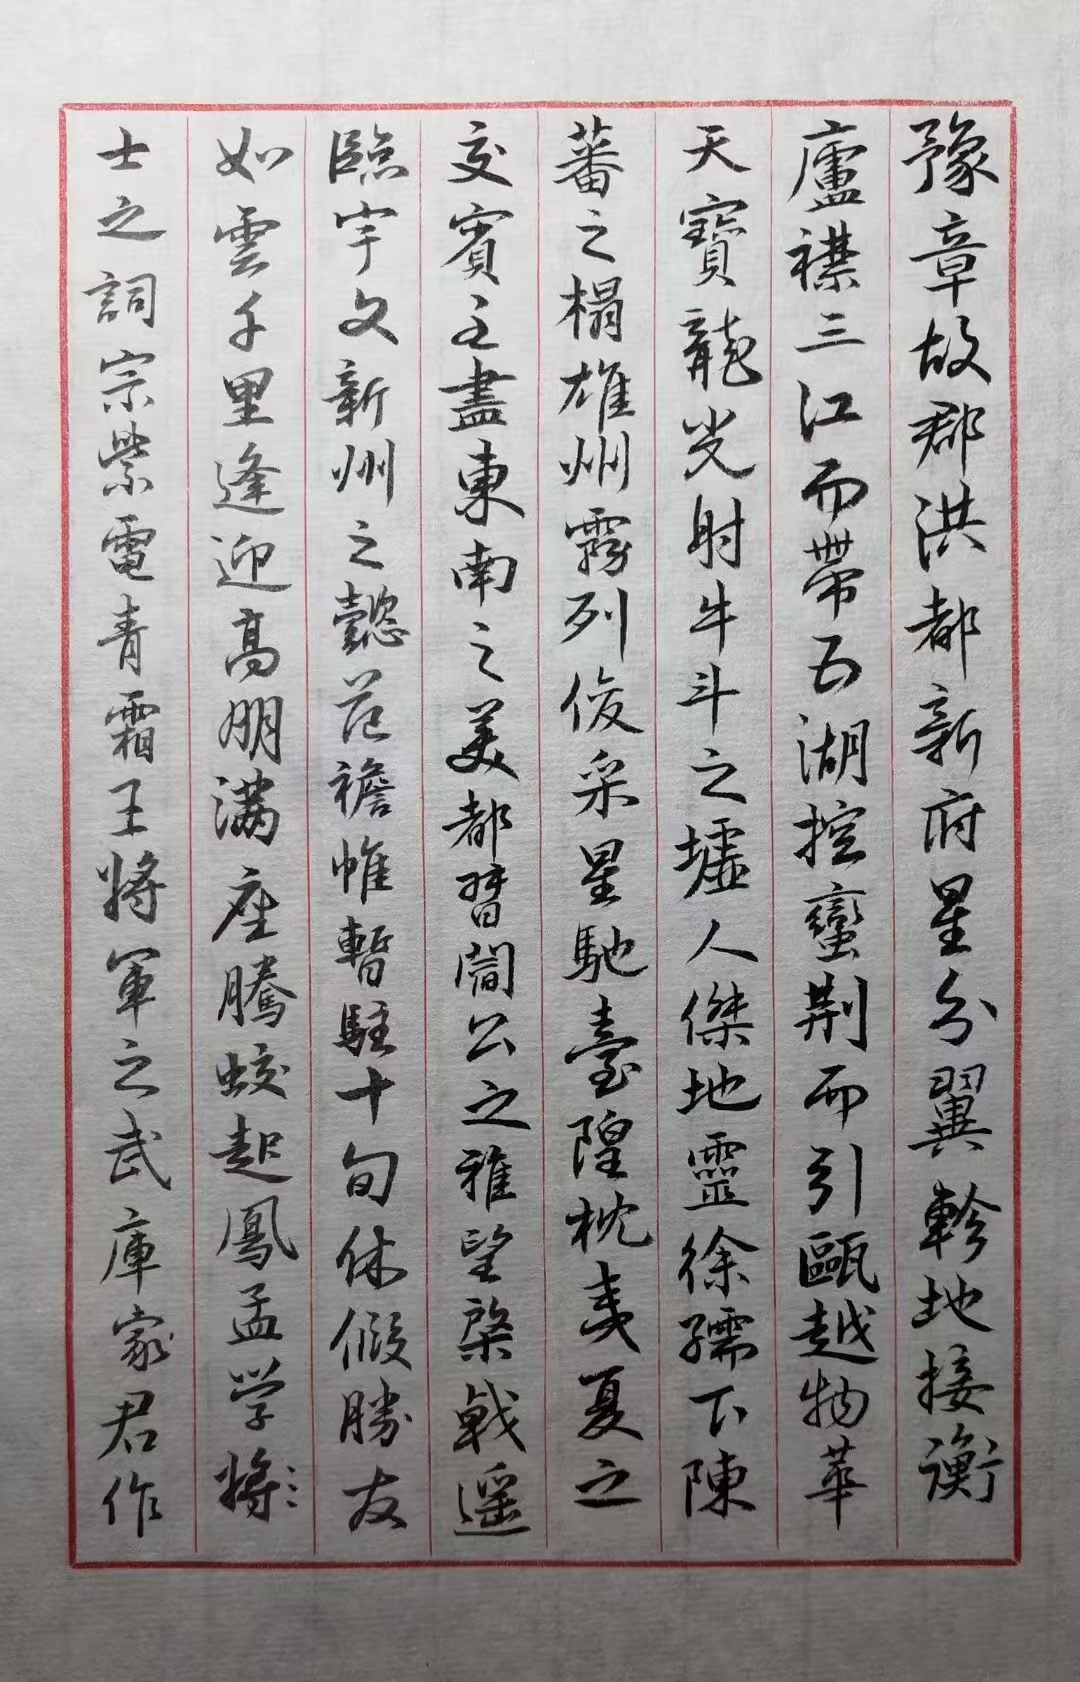 豫章故郡洪都新府星分翼軫地接衡
廬襟三江而帶五湖控蠻荆而引甌越物華
天寶龍光射牛斗之墟人傑地靈徐孺下陳
蕃之榻雄州霧列俊采星馳臺隍枕夷夏之
交賓主盡東南之美都督閻公之雅望棨戟遥
臨宇文新州之懿范襜帷暫駐十旬休假勝友
如雲千里逢迎高朋满座騰蛟起鳳孟学將
士之詞宗紫電青霜王將軍之武庫家君作